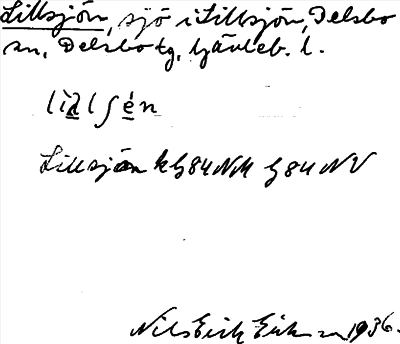 Lillsjön, sjö i Lillsjön, Delsbo
sn, Delsbo tg, Gävleb. l.
Lillsjön k G84NM G84NV
Nils Erik Eriksson 1936.